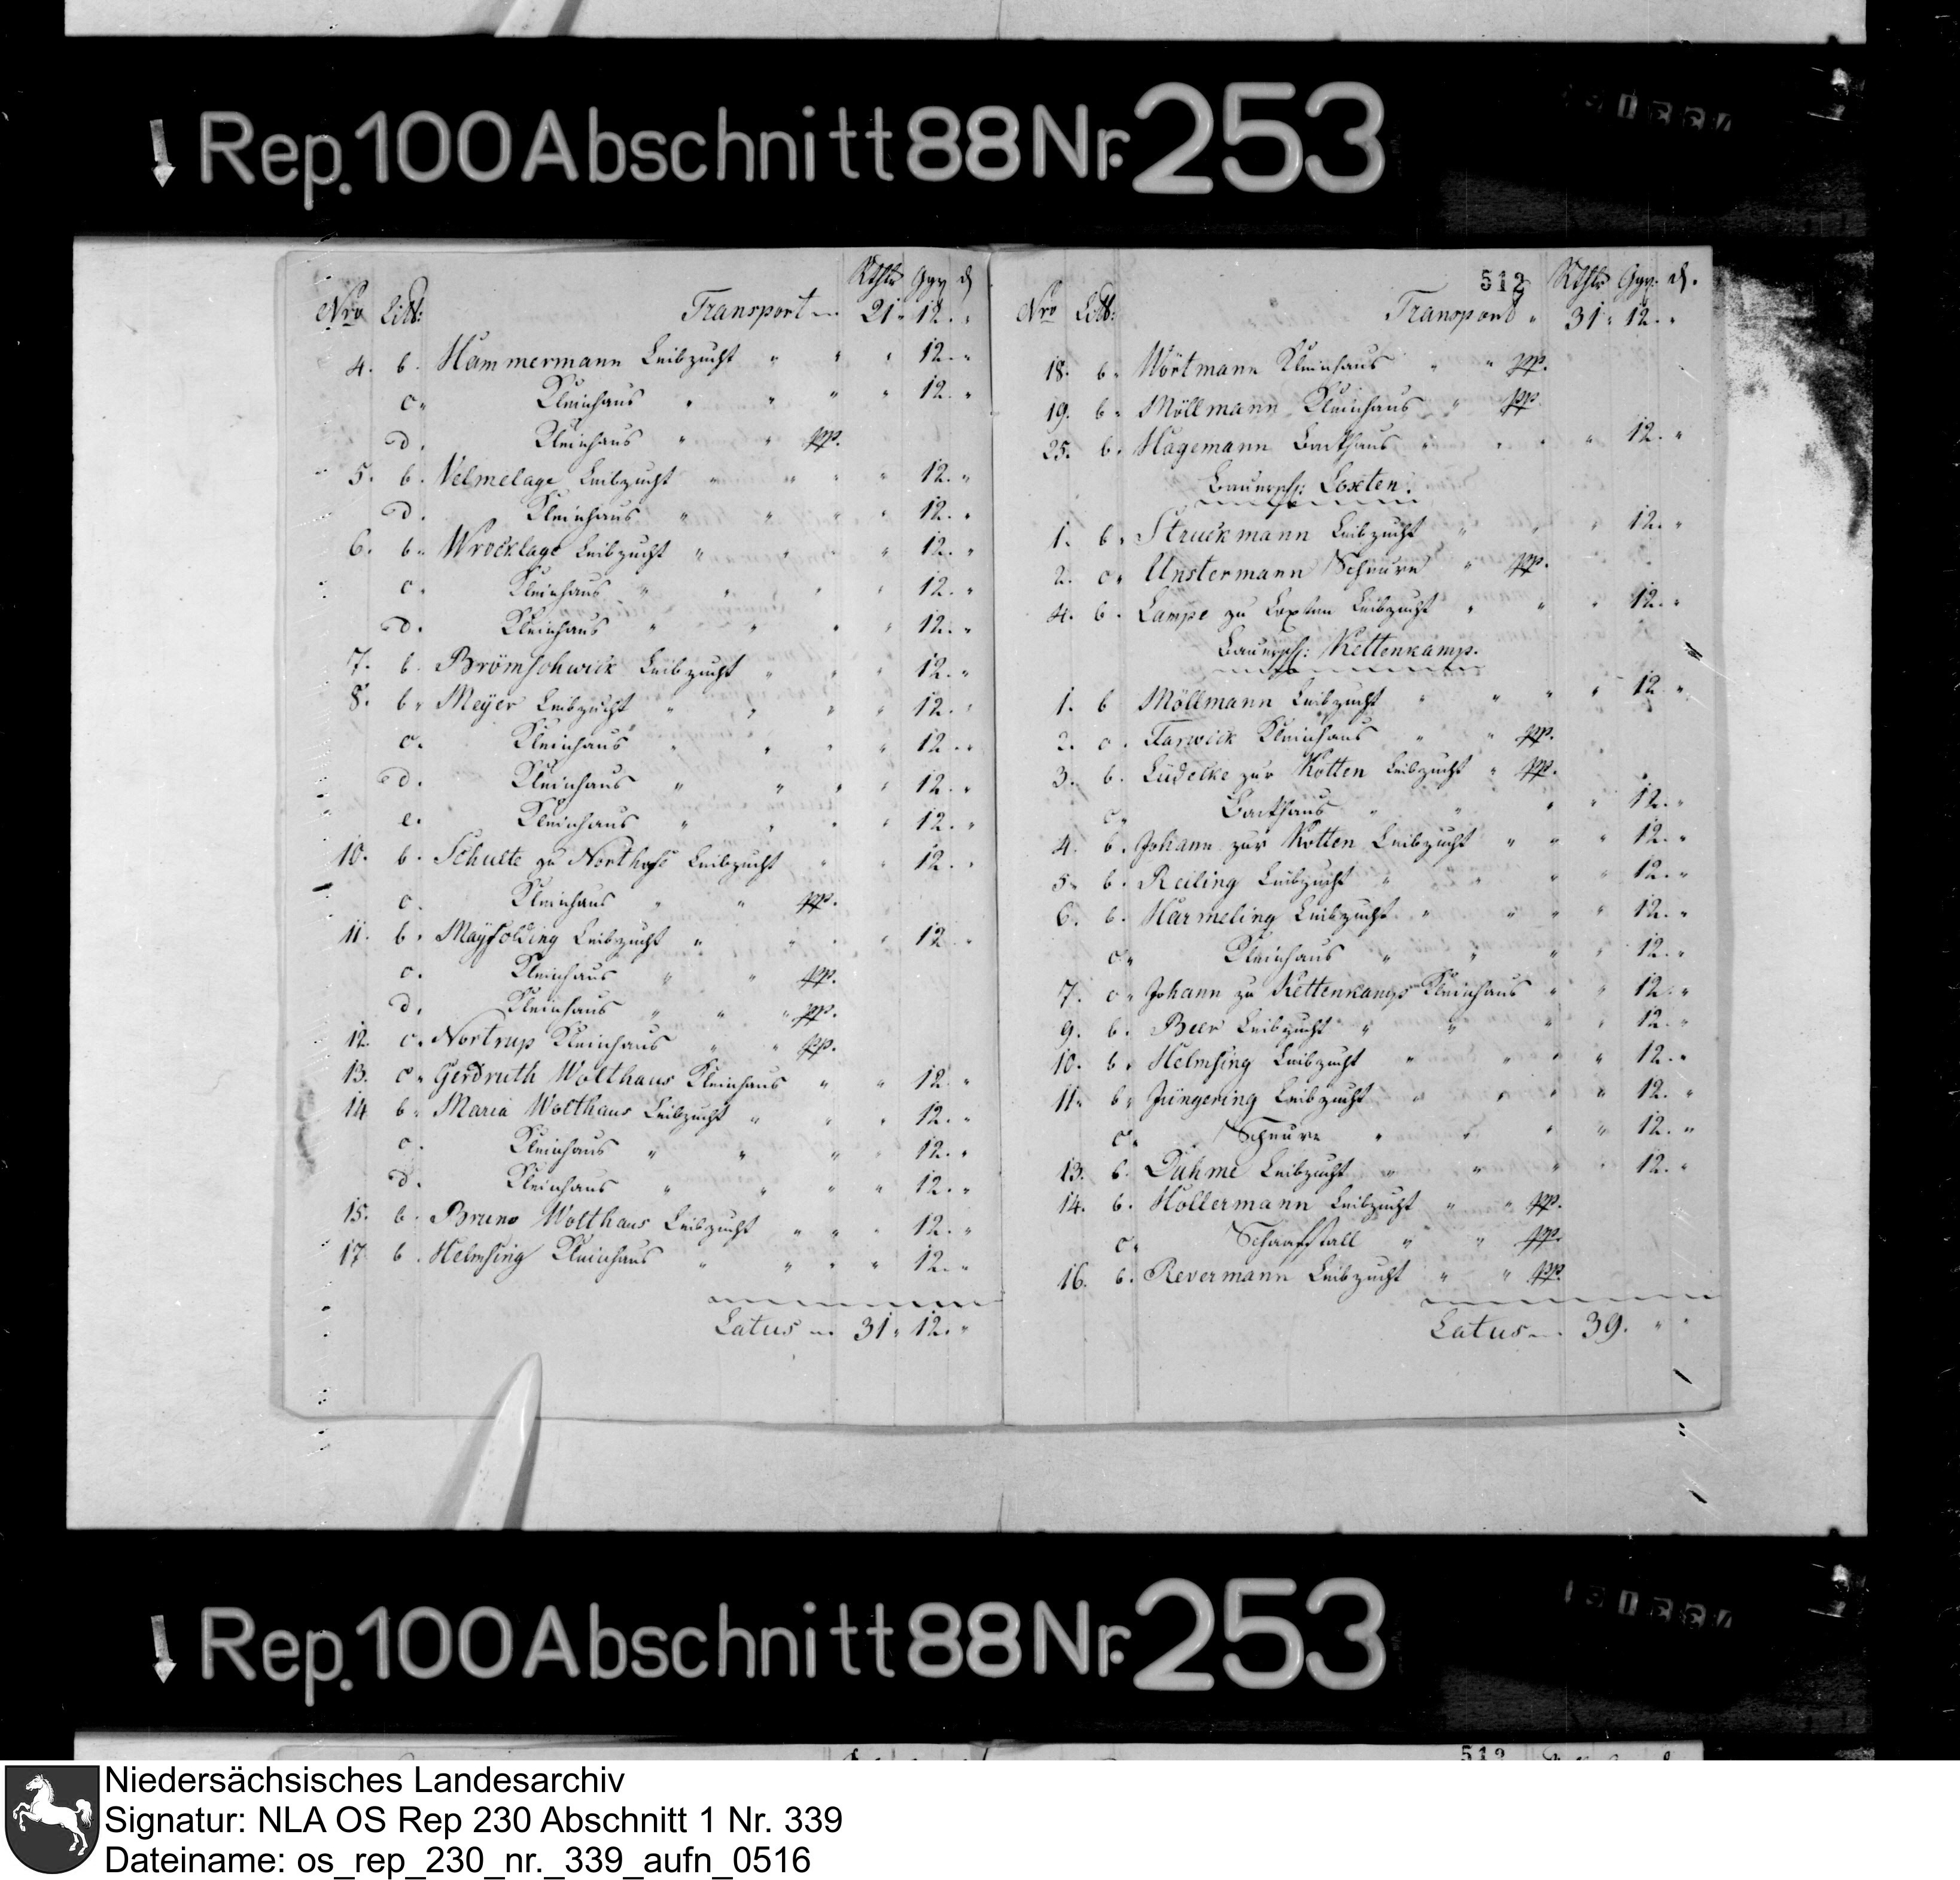 Rep. 100 Abschnitt 88 Nr. 253
Rthlr Ggr d
Nro Litt: Transport 21 " 12. "
4. b. Hammermann Leibzucht " " " 12. "
c. Kleinhaus " " " " 12. "
d. Kleinhaus " " pp.
5. b. Velmelage Leibzucht " " " " 12. "
d. Kleinhaus " " " " 12. "
6. b. Wrocklage Leibzucht " " " 12. "
c. Kleinhaus " " " " 12. "
d. Kleinhaus " " " " 12. "
7. b. Brömschwick Leibzucht " " " 12. "
8. b. Meyer Leibzucht " " " " 12. "
c. Kleinhaus " " " " 12. "
d. Kleinhaus " " " " 12. "
e. Kleinhaus " " " " 12. "
10. b. Schulte zu Northofe Leibzucht " " 12. "
c. Kleinhaus " " pp.
11. b. Mayfolding Leibzucht " " " " 12. "
c. Kleinhaus " " pp.
d. Kleinhaus " " " pp.
12. c. Nortrup Kleinhaus " " pp.
13. c. Gerdruth Wolthaus Kleinhaus " " 12. "
14 b. Maria Wolthaus Leibzucht " " " 12. "
c. Kleinhaus " " " " 12. "
d. Kleinhaus " " " " 12. "
15. b. Bruno Wolthaus Leibzucht " " " 12. "
17 b. Helmsing Kleinhaus " " " " 12. "
Latus 31 " 12. "
512 Rthlr Ggr. d.
Nro Litt: Transport " 31 " 12. "
18. b. Wörtmann Kleinhaus " " pp.
19. b. Möllmann Kleinhaus " pp.
25. b. Hagemann Backhaus " " " " 12. "
Bauersch: Loxten.
1. b. Struckmann Leibzucht " " " 12. "
2. c. Unstermann Scheure " pp.
4. b. Lampe zu Loxten Leibzucht " " " 12. "
Bauersch: Kettenkamp.
1. b Möllmann Leibzucht " " " " 12. "
2. c. Tarwick Kleinhaus " " pp.
3. b. Lüdeke zur Kotten Leibzucht " pp.
c. Backhaus " " " " 12. "
4. b. Johann zur Kotten Leibzucht " " " 12. "
5. b. Reiling Leibzucht " " " " 12. "
6. b. Harmeling Leibzucht " " " " 12. "
c. Kleinhaus " " " " 12. "
7. c. Johann zu Kettenkamp Kleinhaus " " 12. "
9. b. Beer Leibzucht " " " " 12. "
10. b. Helmsing Leibzucht " " " " 12. "
11. b. Jüngering Leibzucht " " " " 12. "
c. Scheure " " " " 12. "
13. b. Dühme Leibzucht " " " " 12. "
14. b. Hollermann Leibzucht " " pp.
c. Schaafstall " " pp.
16. b. Revermann Leibzucht " " pp.
Latus 39. " "
Rep. 100 Abschnitt 88 Nr. 253
512
Niedersächsisches Landesarchiv
Signatur: NLA OS Rep 230 Abschnitt 1 Nr. 339
Dateiname: os_rep_230_nr._339_aufn_0516